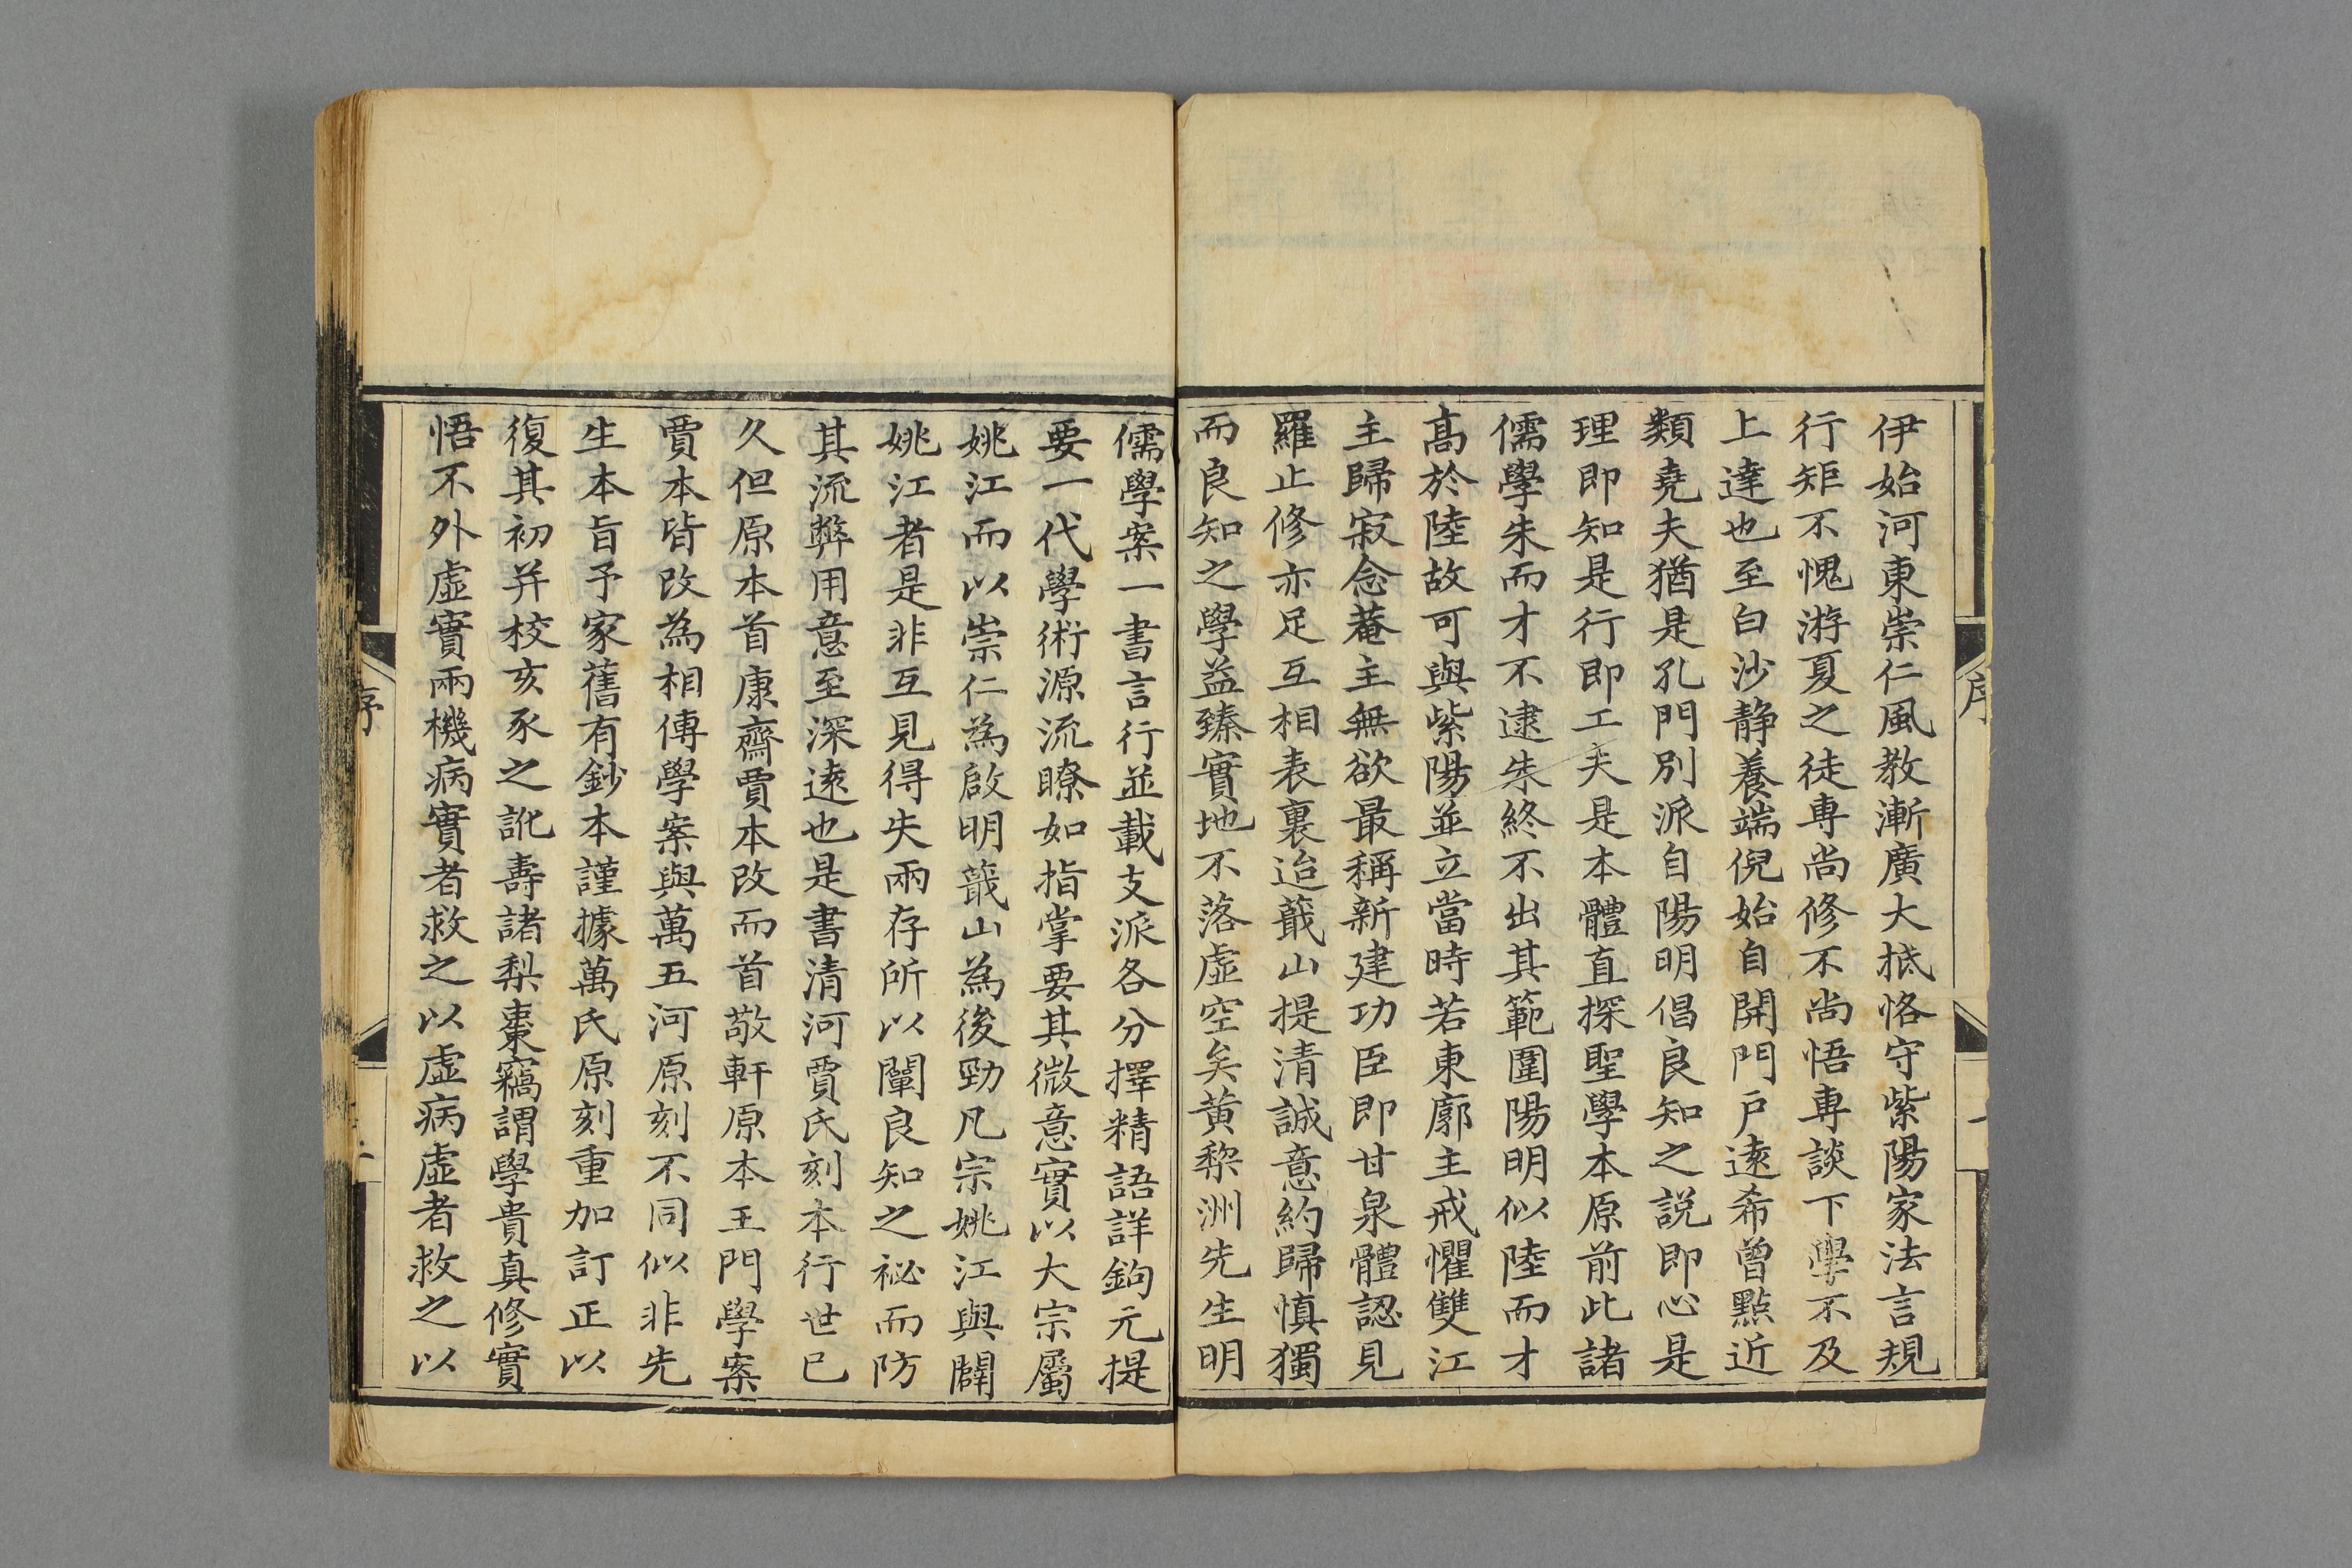 伊始河東崇仁風教漸廣大抵恪守紫陽家法言規
行矩不愧游夏之徒專尚修不尚悟專談下學不及
上達也至白沙静養端倪始自開門戶遠希曾點近
類堯夫猶是孔門別派自陽明倡良知之説即心是
理即知是行即工夫是本體直探聖學本原前此諸
儒學朱而才不逮朱終不出其範圍陽明似陸而才
高於陸故可與紫陽並立當時若東廓主戒懼雙江
主歸寂念菴主無欲最稱新建功臣即甘泉體認見
羅止修亦足互相表裏迨蕺山提清誠意約歸慎獨
而良知之學益臻實地不落虛空矣黃黎洲先生明
儒學案一書言行並載支派各分擇精語詳鉤元提
要一代學術源流瞭如指掌要其微意實以大宗屬
姚江而以崇仁為啟明蕺山為後勁凡宗姚江與闢
姚江者是非互見得失兩存所以闡良知之祕而防
其流弊用意至深遠也是書清河賈氏刻本行世已
久但原本首康齋賈本改而首敬軒原本王門學案
賈本皆改為相傳學案與萬五河原刻不同似非先
生本旨予家舊有鈔本謹據萬氏原刻重加訂正以
復其初并校亥豕之訛壽諸梨棗竊謂學貴真修實
悟不外虛實兩機病實者救之以虛病虛者救之以
序
序